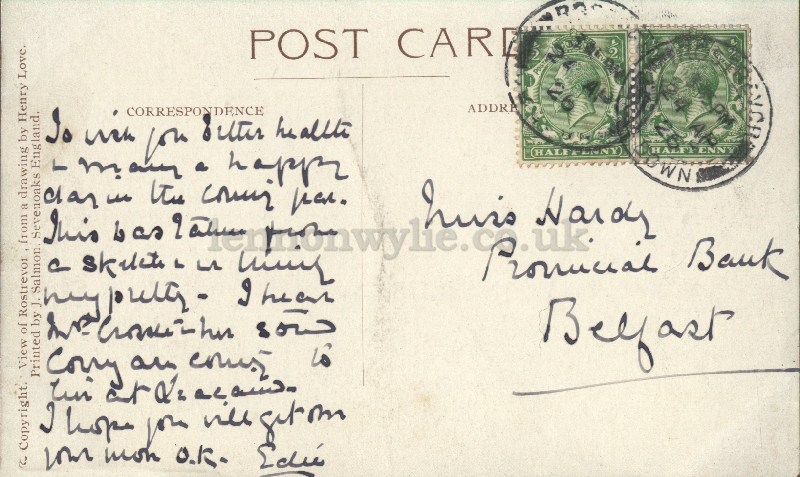 POST CARD
CORRESPONDENCE
To wish you better health
& many a happy
day in the coming year.
This was taken from
a sketch &
very pretty. I hear
Mrs her
Corry are coming to
live at
I hope you will get over
your move O.K. Edie
ADDRE
HALFPENNY HALFPENNY
Miss Hardy
Provincial Bank
Belfast
© Copyright. View of Rostrevor, from a drawing by Henry Love.
Printed by J. Salmon, Sevenoaks England.
lennonwylie.co.uk